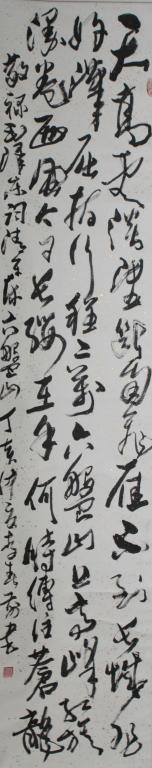 天高云淡望斷南飛雁不到長城非
好漢屈指行程二萬六盤山上高峰紅旗
漫卷西風今日長纓在手何時縛住蒼龍
敬録毛澤東詞清平樂六盤山丁亥仲夏書